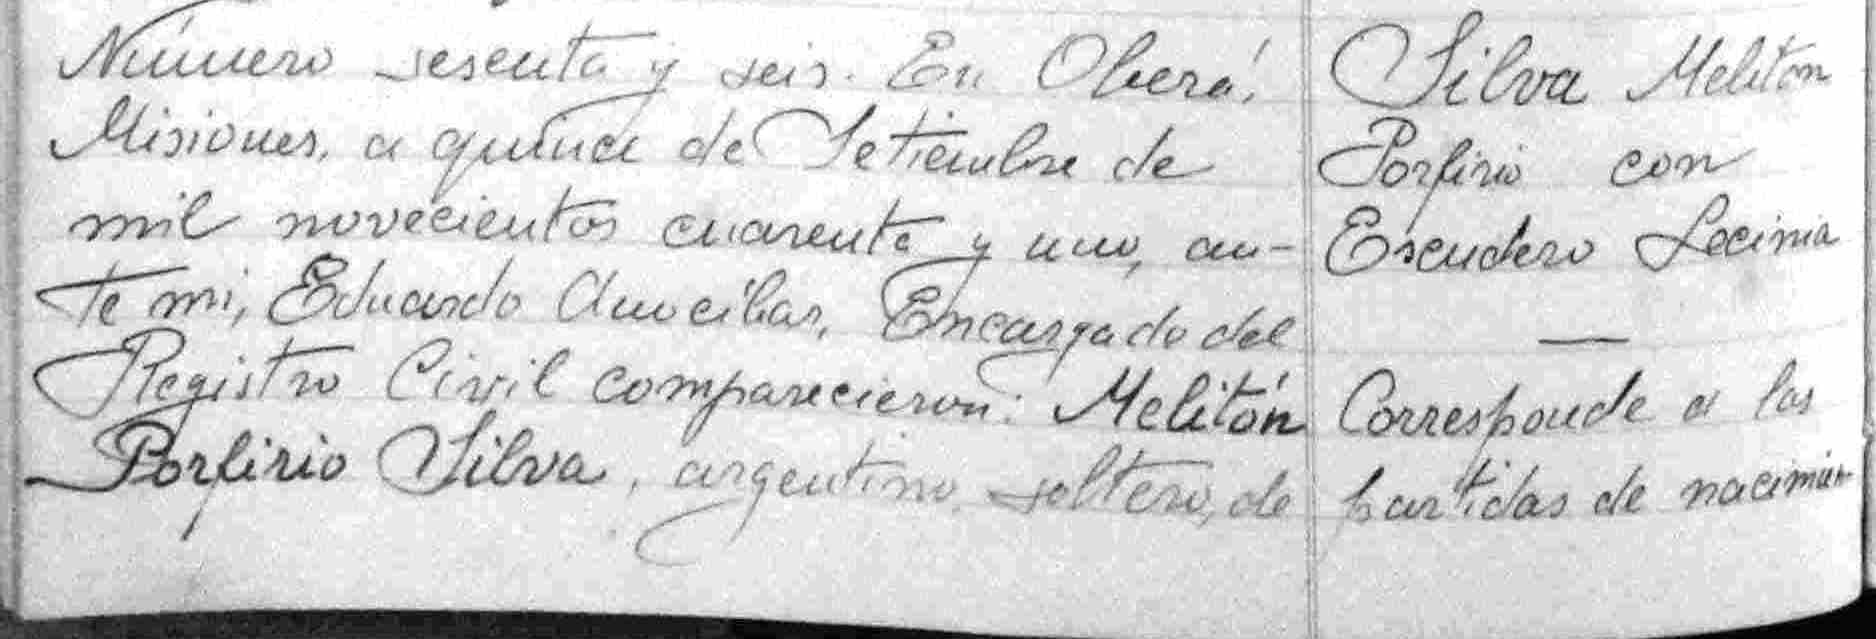 Número sesenta y seis. En Oberá,
Misiones, a quince de Setiembre de
mil novecientos cuarenta y uno, an-
te mi, Eduardo Encargado del
Registro Civil comparecieron: Melitón
Porfirio Silva, argentino, soltero, de
Silva Meliton
Porfirio con
Escudero Lecinia
—
Corresponde a las
partidas de nacimien-